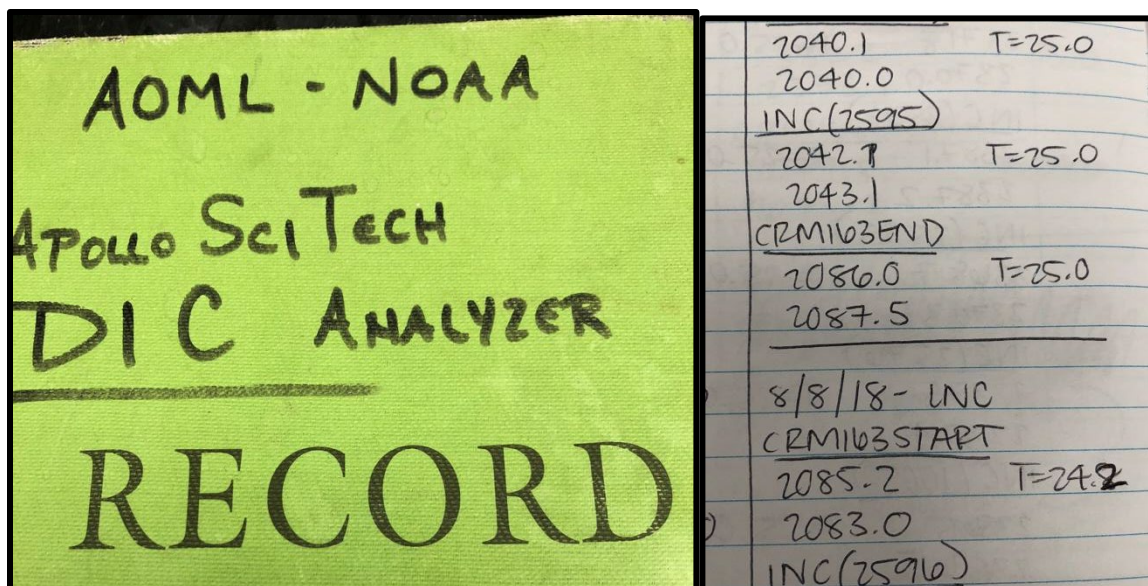 AOML - NOAA
APOLLO SCITECH
DIC ANALYZER
RECORD
2040.1 T=25.0
2040.0
INC(2595)
2042.1 T=25.0
2043.1
CRM163END
2086.0 T=25.0
2087.5
8/8/18- INC
CRM163START
2085.2 T=24.2
2083.0
INC(2596)